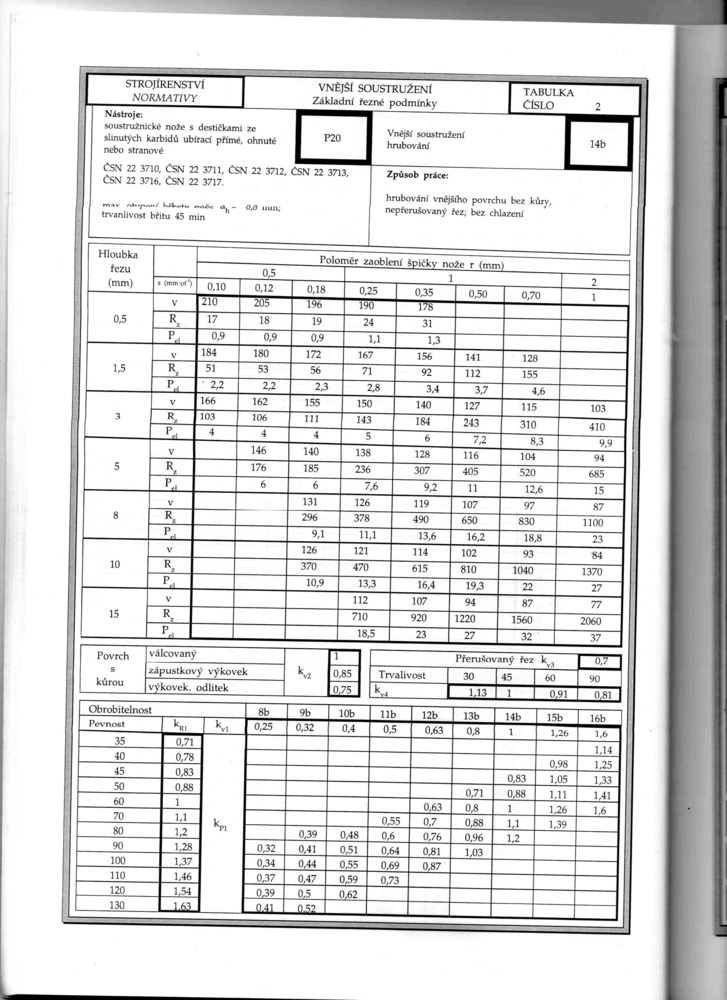 STROJÍRENSTVÍ
NORMATIVY
VNĚJŠÍ SOUSTRUŽENÍ
Základní řezné podmínky
TABULKA
ČÍSLO 2
Nástroje:
soustružnické nože s destičkami ze
slinutých karbidů ubírací přímé, ohnuté
nebo stranové
P20
Vnější soustružení
hrubování
14b
ČSN 22 3710, ČSN 22 3711, ČSN 22 3712, ČSN 22 3713,
ČSN 22 3716, ČSN 22 3717.
trvanlivost břitu 45 min
Způsob práce:
hrubování vnějšího povrchu bez kůry,
nepřerušovaný řez; bez chlazení
Hloubka
řezu
(mm)
Poloměr zaoblení špičky nože r (mm)
0,5 1 2
s (mm·ot⁻¹) 0,10 0,12 0,18 0,25 0,35 0,50 0,70 1
0,5
v 210 205 196 190 178
Rz 17 18 19 24 31
Pel 0,9 0,9 0,9 1,1 1,3
1,5
v 184 180 172 167 156 141 128
Rz 51 53 56 71 92 112 155
Pel 2,2 2,2 2,3 2,8 3,4 3,7 4,6
3
v 166 162 155 150 140 127 115 103
Rz 103 106 111 143 184 243 310 410
Pel 4 4 4 5 6 7,2 8,3 9,9
5
v 146 140 138 128 116 104 94
Rz 176 185 236 307 405 520 685
Pel 6 6 7,6 9,2 11 12,6 15
8
v 131 126 119 107 97 87
Rz 296 378 490 650 830 1100
Pel 9,1 11,1 13,6 16,2 18,8 23
10
v 126 121 114 102 93 84
Rz 370 470 615 810 1040 1370
Pel 10,9 13,3 16,4 19,3 22 27
15
v 112 107 94 87 77
Rz 710 920 1220 1560 2060
Pel 18,5 23 27 32 37
Povrch
s
kůrou
válcovaný 1
zápustkový výkovek kv2 0,85
výkovek. odlitek 0,75
Přerušovaný řez kv3 0,7
Trvalivost 30 45 60 90
kv4 1,13 1 0,91 0,81
Obrobitelnost 8b 9b 10b 11b 12b 13b 14b 15b 16b
Pevnost kR1 kv1 0,25 0,32 0,4 0,5 0,63 0,8 1 1,26 1,6
kP1
35 0,71 1,14
40 0,78 0,98 1,25
45 0,83 0,83 1,05 1,33
50 0,88 0,71 0,88 1,11 1,41
60 1 0,63 0,8 1 1,26 1,6
70 1,1 0,55 0,7 0,88 1,1 1,39
80 1,2 0,39 0,48 0,6 0,76 0,96 1,2
90 1,28 0,32 0,41 0,51 0,64 0,81 1,03
100 1,37 0,34 0,44 0,55 0,69 0,87
110 1,46 0,37 0,47 0,59 0,73
120 1,54 0,39 0,5 0,62
130 1,63 0,41 0,52